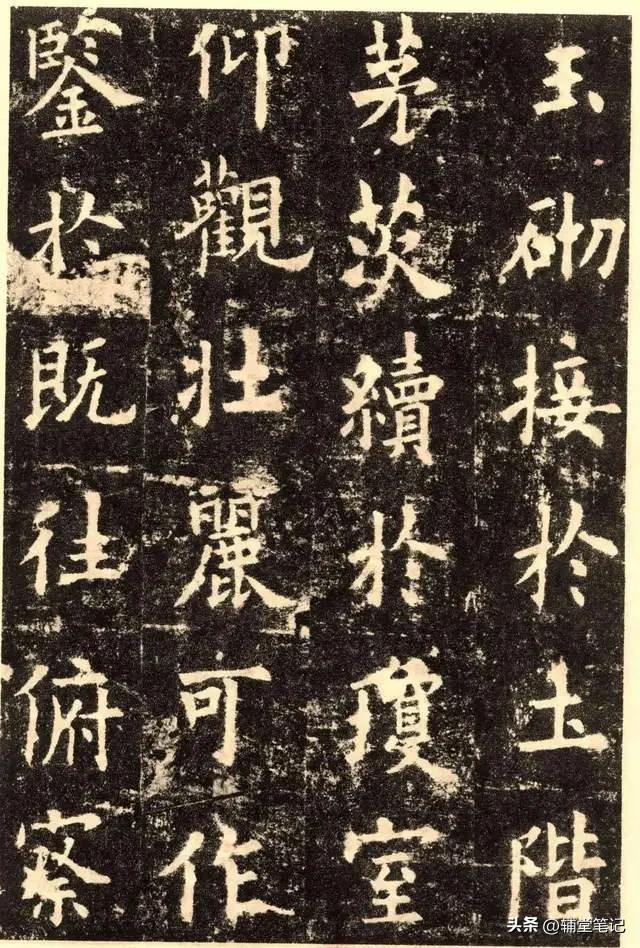 玉砌接於土階
茅茨續於瓊室
仰觀壯麗可作
鑒於既往俯察
头条 @辅堂笔记